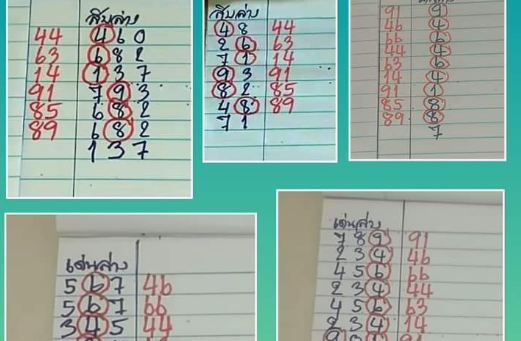 สิบล่าง
44 4 6 0
63 6 8 2
14 1 3 7
91 7 9 3
85 6 8 2
89 6 8 2
1 3 7
สิบล่าง
4 8 44
2 6 63
7 1 14
9 3 91
8 2 85
4 8 89
7 1
91 9
46 4
66 6
44 4
63 6
14 4
91 1
85 8
89 8
7
เด่นล่าง
5 6 7 46
5 6 7 66
3 4 5 44
เด่นล่าง
7 8 9 91
2 3 4 46
4 5 6 66
2 3 4 44
4 5 6 63
2 3 4 14